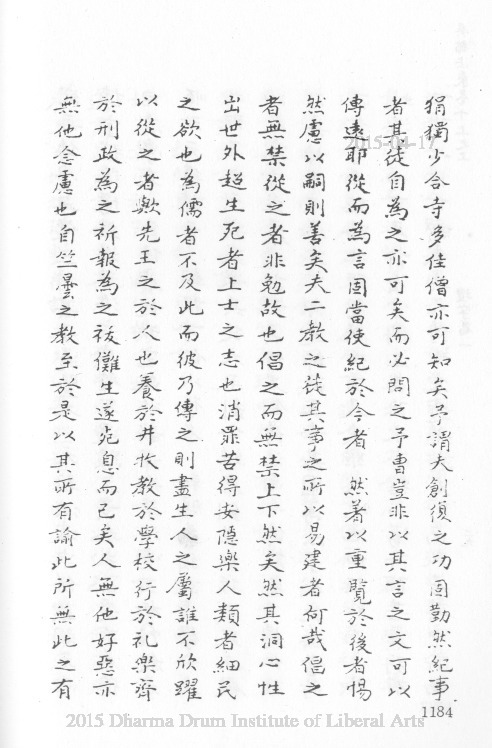 狷獨少合寺多佳僧亦可知矣予謂夫創復之功固勤然紀事
者其徒自為之亦可矣而必問之予曹豈非以其言之文可以
傳遠耶從而為言固當使紀於今者 然著以重覽於後者惕
然慮以嗣則善矣夫二教之徒其事之所以易建者何哉倡之
者無禁從之者非勉故也倡之而無禁上下然矣然其洞心性
出世外超生死者上士之志也消罪苦得安隱樂人類者細民
之欲也為儒者不及此而彼乃傳之則盡生人之屬誰不欣躍
以從之者歟先王之於人也養於井牧教於學校行於礼樂齊
於刑政為之祈報為之祓儺生遂死息而已矣人無他好惡亦
無他念慮也自竺曇之教至於是以其所有諭此所無此之有
1184
2015-04-17
2015 Dharma Drum Institute of Liberal Arts